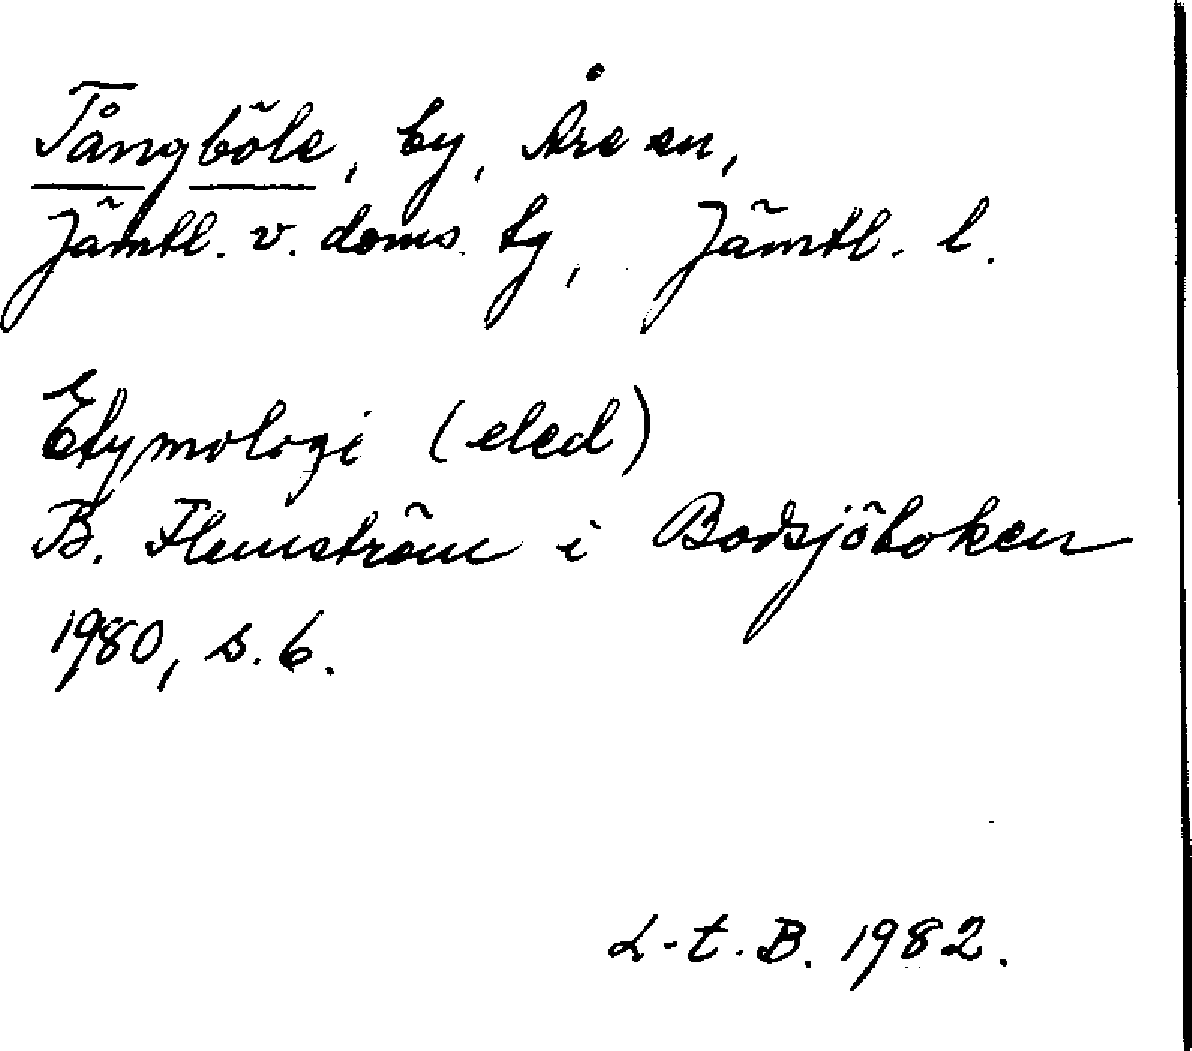 Tångböle, by, Åre sn,
Jämtl. v. doms. tg, Jämtl. l.
Etymologi (eled)
B. Flemström i Bodsjöboken
1980, s. 6.
L-t. B. 1982.